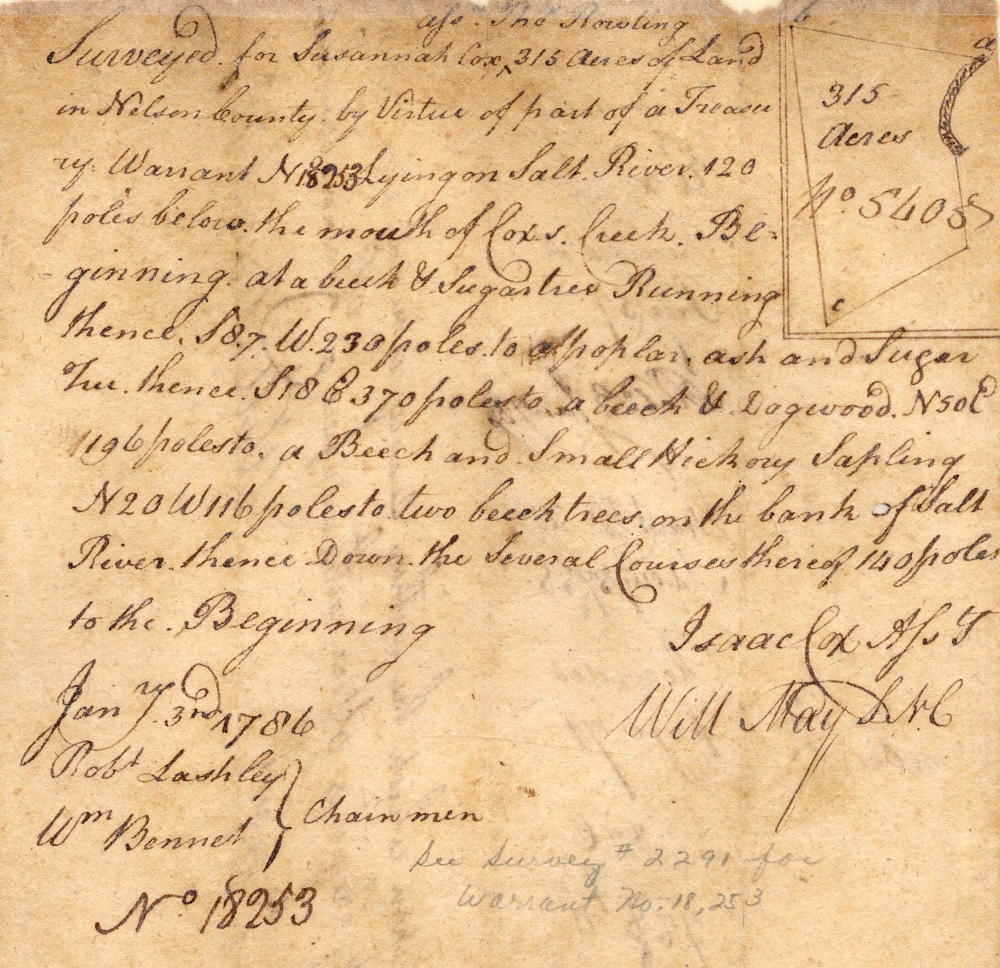 asse. Tho Rowling
Surveyed. for Susannah Cox, ^ 315 Acres of Land
in Nelson County. by Virtue of part of a Treasu
ry. Warrant No 18253 Lying on Salt. River. 120
poles below. the mouth of Coxs. Creek. Be-
-ginning. at a beech & Sugartree Running
thence. S87. W. 230 poles. to a poplar. ash and Sugar
Tree. thence. S18 E 370 poles to. a beech & Dogwood. N50E
196 poles to. a Beech and Small Hickory Sapling
N20W116 poles to two beech trees. on the bank of Salt
River. thence Down. the Several Courses thereof 140 poles
to the. Beginning
Isaac Cox Ass T
Will May S.N.C
Jany. 3rd 1786
Robt Lashley
Wm Bennet } Chainmen
No 18253
See Survey # 2291 for
Warrant No. 18,253
b
a
315
Acres
No 5405
c